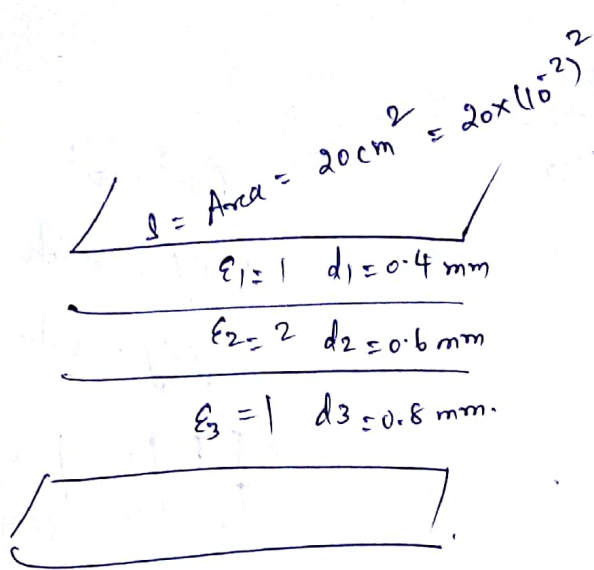 S = Area = 20cm² = 20×(10⁻²)²
ε₁=1 d₁=0.4 mm
ε₂=2 d₂=0.6 mm
ε₃=1 d3=0.8 mm.